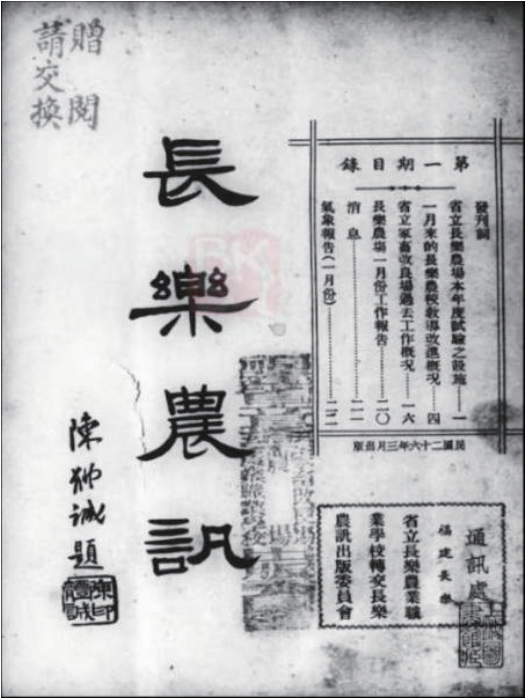 贈閱
請交換
第一期目錄
發刊詞
省立長樂農場本年度試驗之設施……一
一月來的長樂農校教導改進概況……四
省立家畜改良場過去工作概況……一六
長樂農場一月份工作報告……二〇
消息……二一
氣象報告(一月份)……二二
民國二十六年三月出版
長樂農訊
陳
誠題
通訊處
福建長樂
省立長樂農業職
業學校轉交長樂
農訊出版委員會